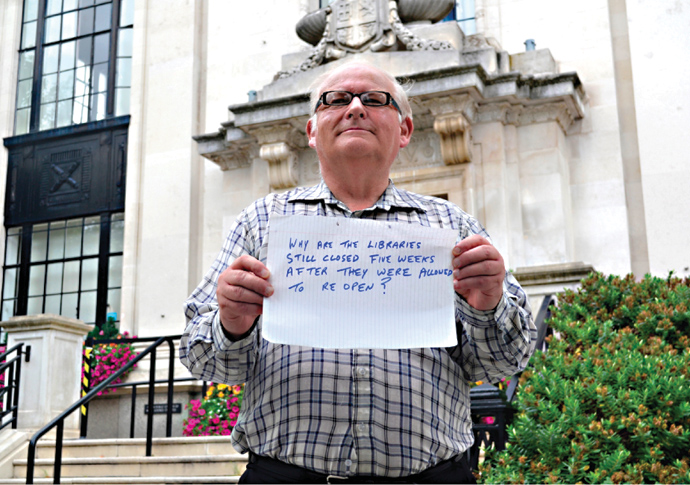 WHY ARE THE LIBRARIES
STILL CLOSED FIVE WEEKS
AFTER THEY WERE ALLOWED
TO RE OPEN?